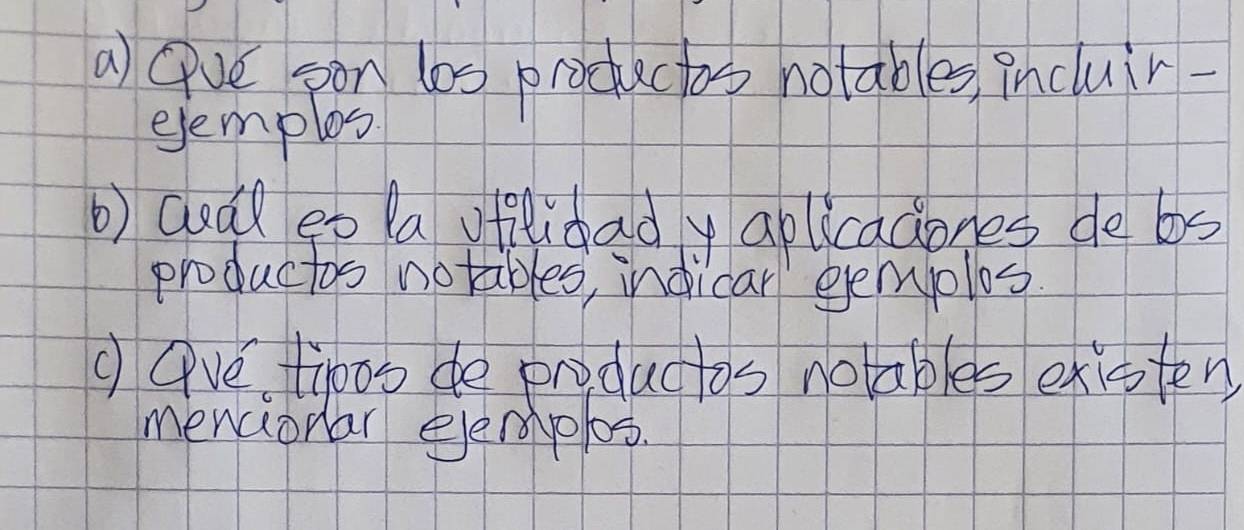 a) Qué son los productos notables, incluir-
ejemplos.
b) Cuál es la utilidad y aplicaciones de los
productos notables, indicar ejemplos.
c) Qué tipos de productos notables existen,
mencionar ejemplos.